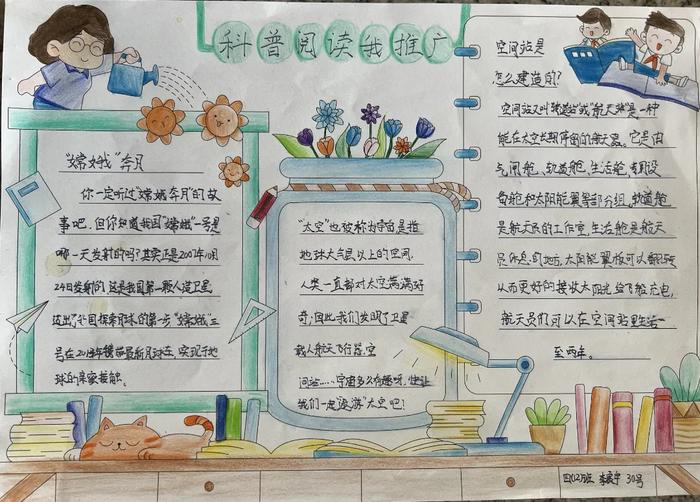 科普阅读我推广
"嫦娥"奔月
你一定听过"嫦娥奔月"的故
事吧,但你知道我国"嫦娥"一号是
哪一天发射的吗?其实正是2007年10月
24日发射的,这是我国第一颗人造卫星
迈出了中国探索月球的第一步"嫦娥"三
号在2013年
月球
实现了地
球的
接触。
"太空"也被称为宇宙是指
地球大气层以上的空间,
人类一直都对太空满满好
奇,因此我们发明了卫星
载人航天飞行器空
间站……宇宙多么有趣呀,快让
我们一定遨游"太空吧!
空间站是
怎么建造的?
空间站又叫轨道站或航天站是一种
能在太空长期停留的航天器。它是由
气闸舱、轨道舱、生活舱、
设
备舱和太阳能翼等部分组,轨道舱
是航天员的工作室,生活舱是航天
员休息的地方,太阳能翼板可以
从而更好的接收太阳光给飞船充电,
航天员们可以在空间站里生活一
至两年。
四(2)班 李
宇 30号